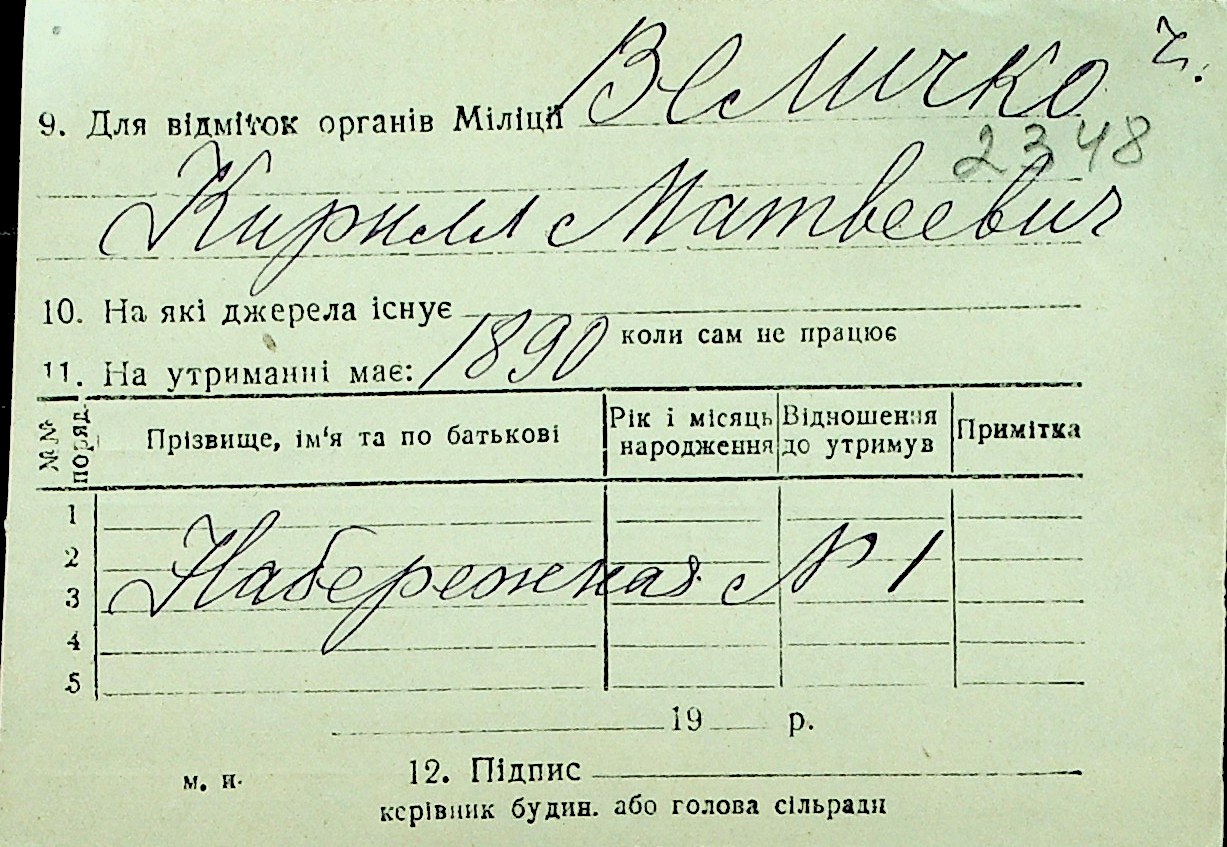 Величко ч.
9. Для відміток органів Міліції
2348
Кирилл Матвеевич
10. На які джерела існує
коли сам не працює
11. На утриманні має: 1890
№№ поряд. Прізвище, ім'я та по батькові Рік і місяць народження Відношення до утримув Примітка
1
2
Набережная № 1
3
4
5
19 р.
м. п. 12. Підпис
керівник будин. або голова сільради